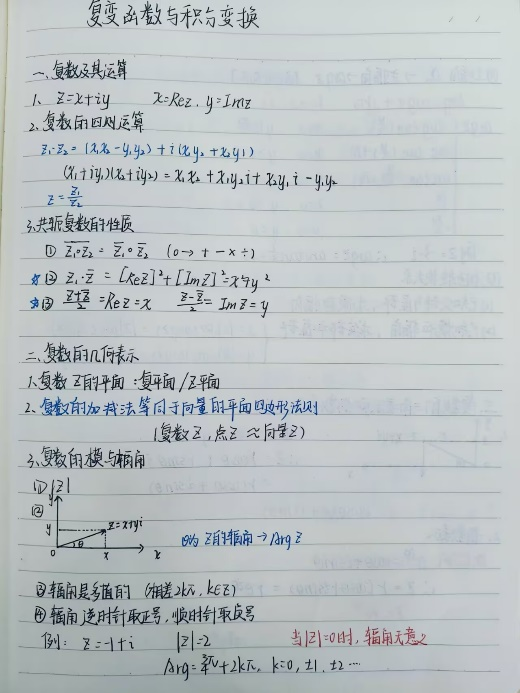 复变函数与积分变换
一、复数及其运算
1、 z=x+iy x=Rez、y=Imz
2.复数的四则运算
z₁·z₂=(x₁x₂-y₁y₂)+i(x₁y₂+x₂y₁)
(x₁+iy₁)(x₂+iy₂)=x₁x₂+x₁y₂i+x₂y₁i-y₁y₂
z=z₁/z₂
3.共轭复数的性质
① \overline{z₁∘z₂}=\overline{z₁}∘\overline{z₂} (∘→+-×÷)
☆② z₁·\overline{z}=[Rez]²+[Imz]²=x²+y²
☆③ (z+\overline{z})/2=Rez=x (z-\overline{z})/2=Imz=y
二、复数的几何表示
1.复数z的平面:复平面/z平面
2、复数的加减法等同于向量的平面四边形法则
(复数z,点z≈向量z)
3、复数的模与辐角
①|z|
②
y
y z=x+yi
θ
0 x x
θ为z的辐角→Argz
③辐角是多值的 (相差2kπ,k∈Z)
④辐角逆时针取正号,顺时针取负号
例: z=-1+i |z|=2 当|z|=0时,辐角无意义
Arg=¾π+2kπ, k=0,±1,±2…